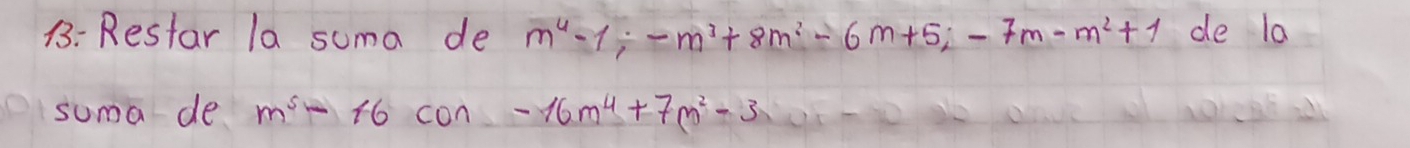 13.- Restar la suma de m⁴-1; -m³+8m²-6m+5; -7m-m²+1 de la
suma de m⁵-16 con -16m⁴+7m²-3